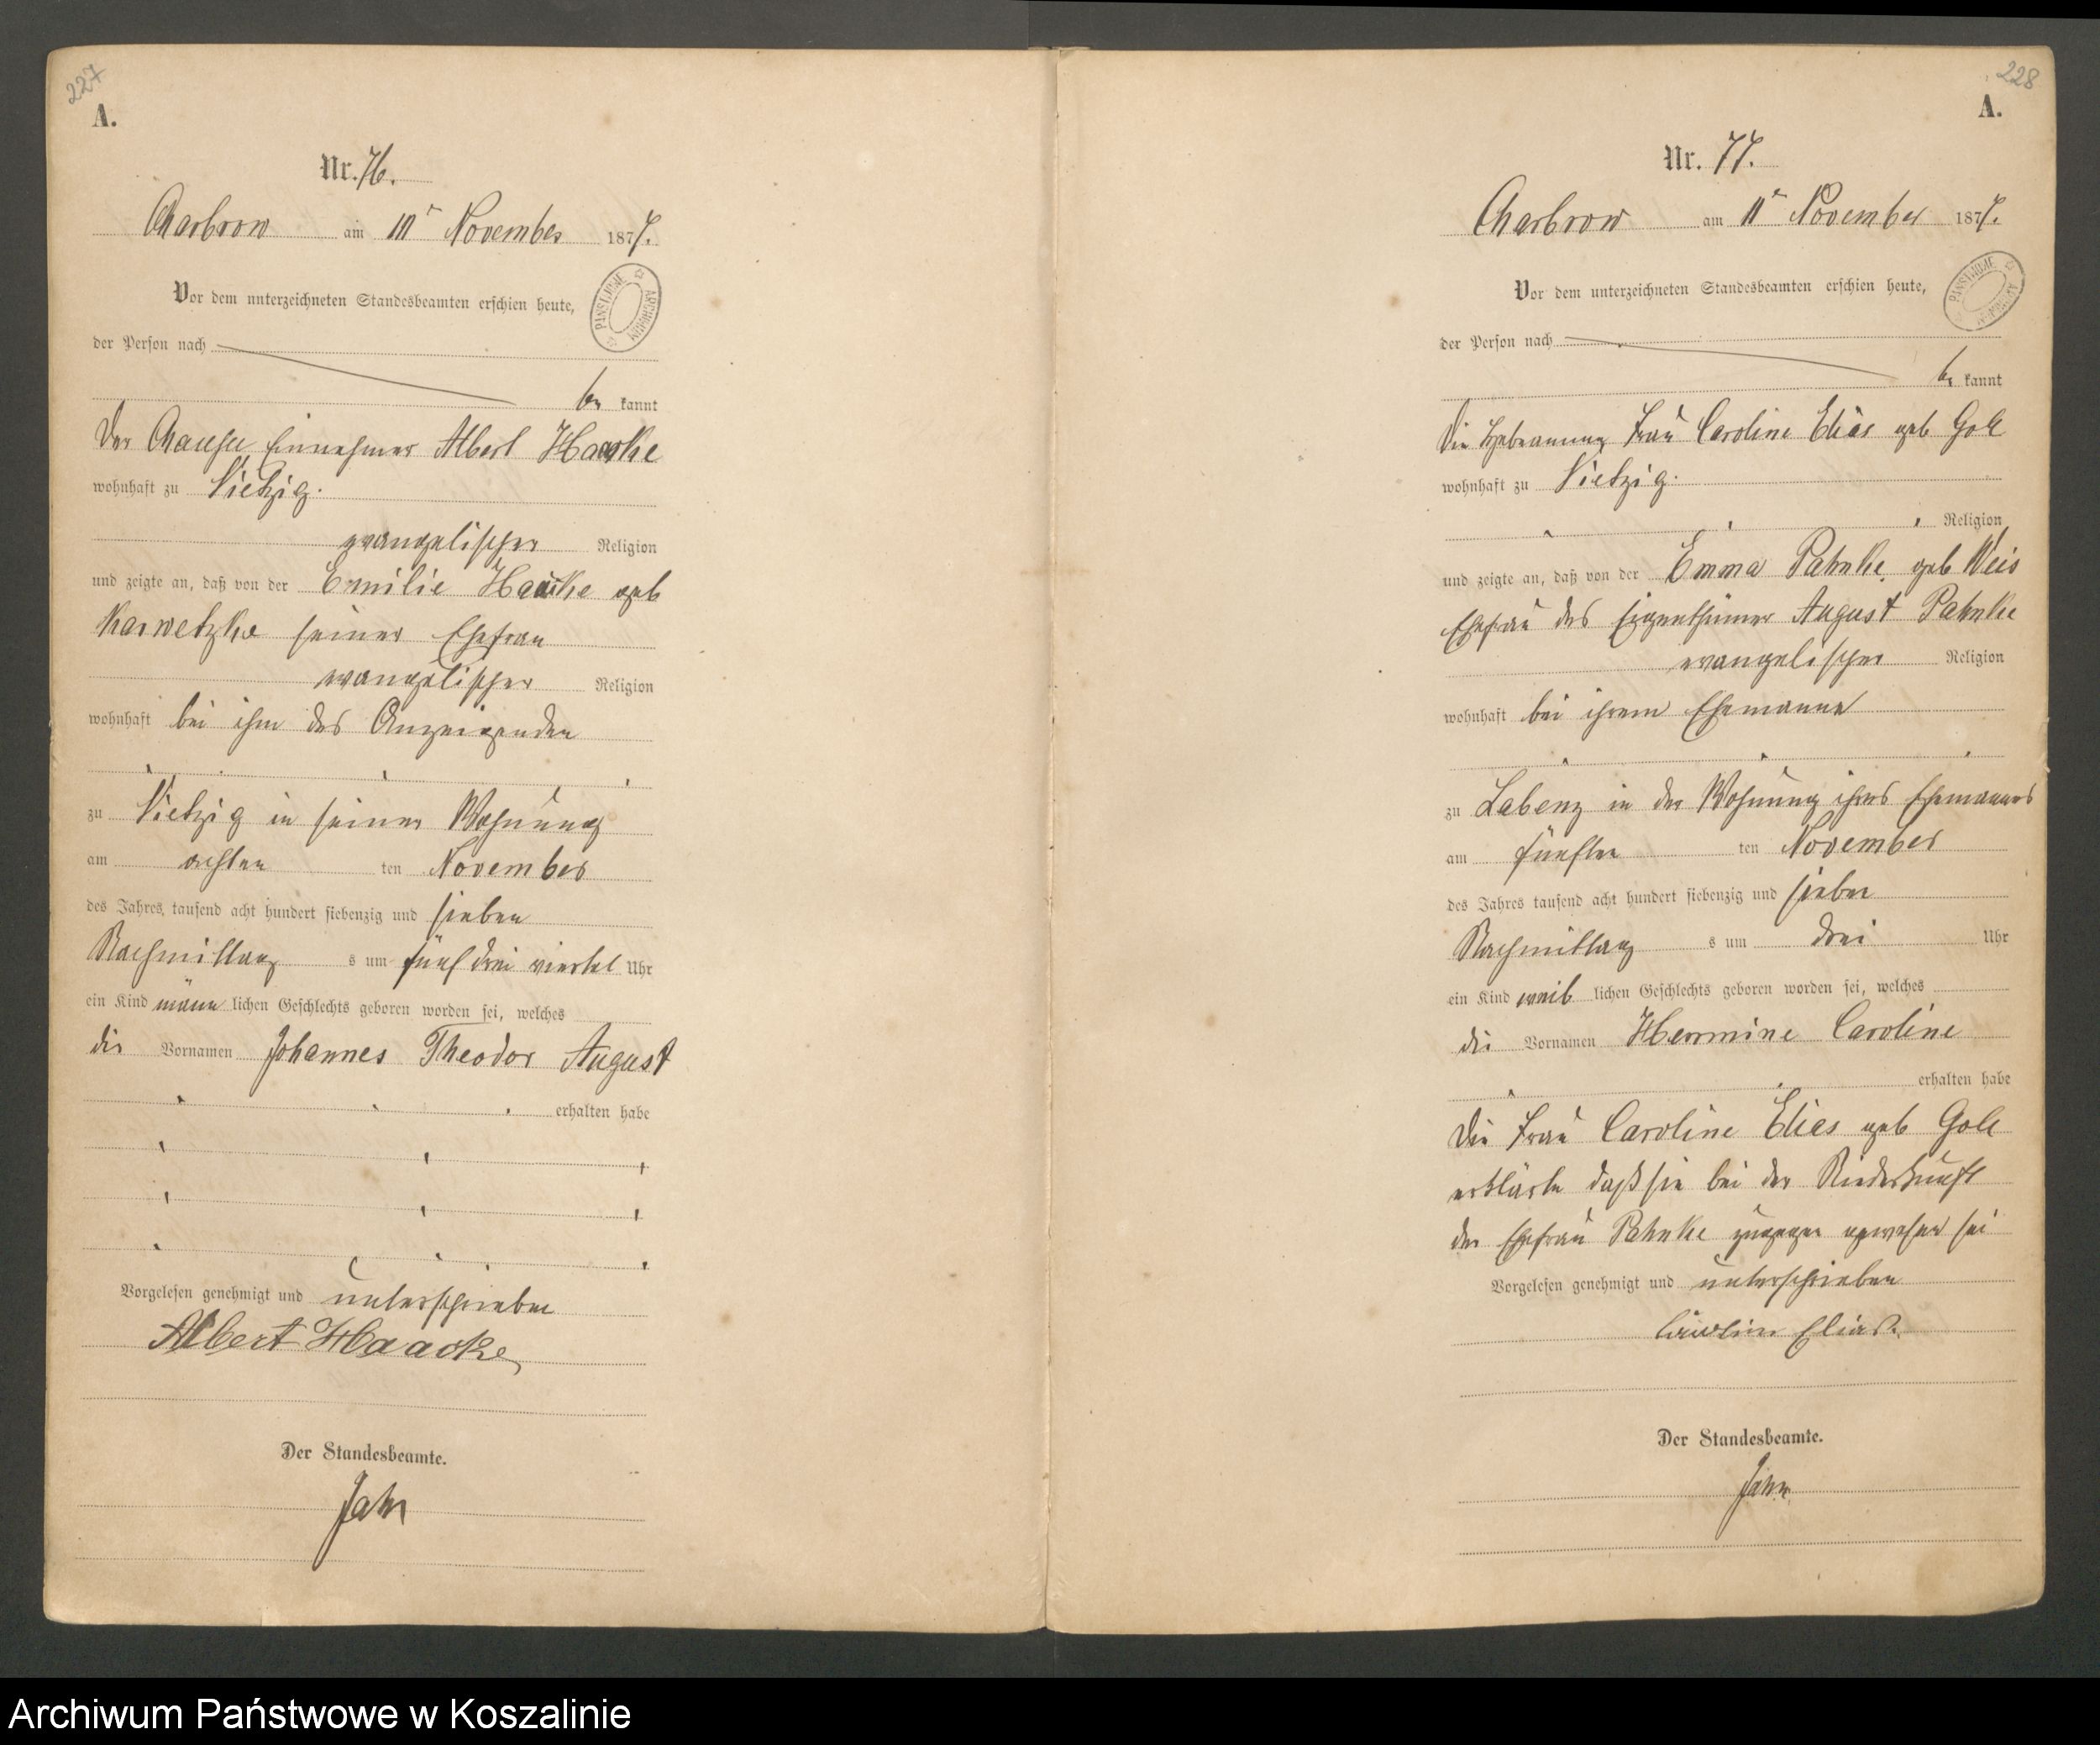 227
A.
Nr. 76.
Charbrow am 10ᵗ November 1877.
Vor dem unterzeichneten Standesbeamten erschien heute,
PAŃSTWOWE ARCHIWUM
der Person nach
be kannt
Der Chausse Einnehmer Albert Haacke
wohnhaft zu Vietzig.
evangelischer Religion
und zeigte an, daß von der Emilie Haacke geb
Karwetzke seiner Ehefrau
evangelischer Religion
wohnhaft bei ihm des Anzeigenden
zu Vietzig in seiner Wohnung
am achten ten November
des Jahres tausend acht hundert siebenzig und sieben
Nachmittag s um fünf drei viertel Uhr
ein Kind männ lichen Geschlechts geboren worden sei, welches
die Vornamen Johannes Theodor August
erhalten habe
Vorgelesen genehmigt und unterschrieben
Albert Haacke
Der Standesbeamte.
Jahn
228
A.
Nr. 77.
Charbrow am 11ᵗ November 1877.
Vor dem unterzeichneten Standesbeamten erschien heute,
PAŃSTWOWE ARCHIWUM
der Person nach
be kannt
Die Hebeamme Frau Caroline Elias geb Goll
wohnhaft zu Vietzig.
Religion
und zeigte an, daß von der Emma Pahnke geb Weis
Ehefrau des Eigenthümer August Pahnke
evangelischer Religion
wohnhaft bei ihrem Ehemanne
zu Labenz in der Wohnung ihres Ehemannes
am fünften ten November
des Jahres tausend acht hundert siebenzig und sieben
Nachmittag s um drei Uhr
ein Kind weib lichen Geschlechts geboren worden sei, welches
die Vornamen Hermine Caroline
erhalten habe
Die Frau Caroline Elias geb Goll
erklärte daß sie bei der Niederkunft
der Ehefrau Pahnke zugegen gewesen sei
Vorgelesen genehmigt und unterschrieben
Caroline Elias.
Der Standesbeamte.
Jahn
Archiwum Państwowe w Koszalinie